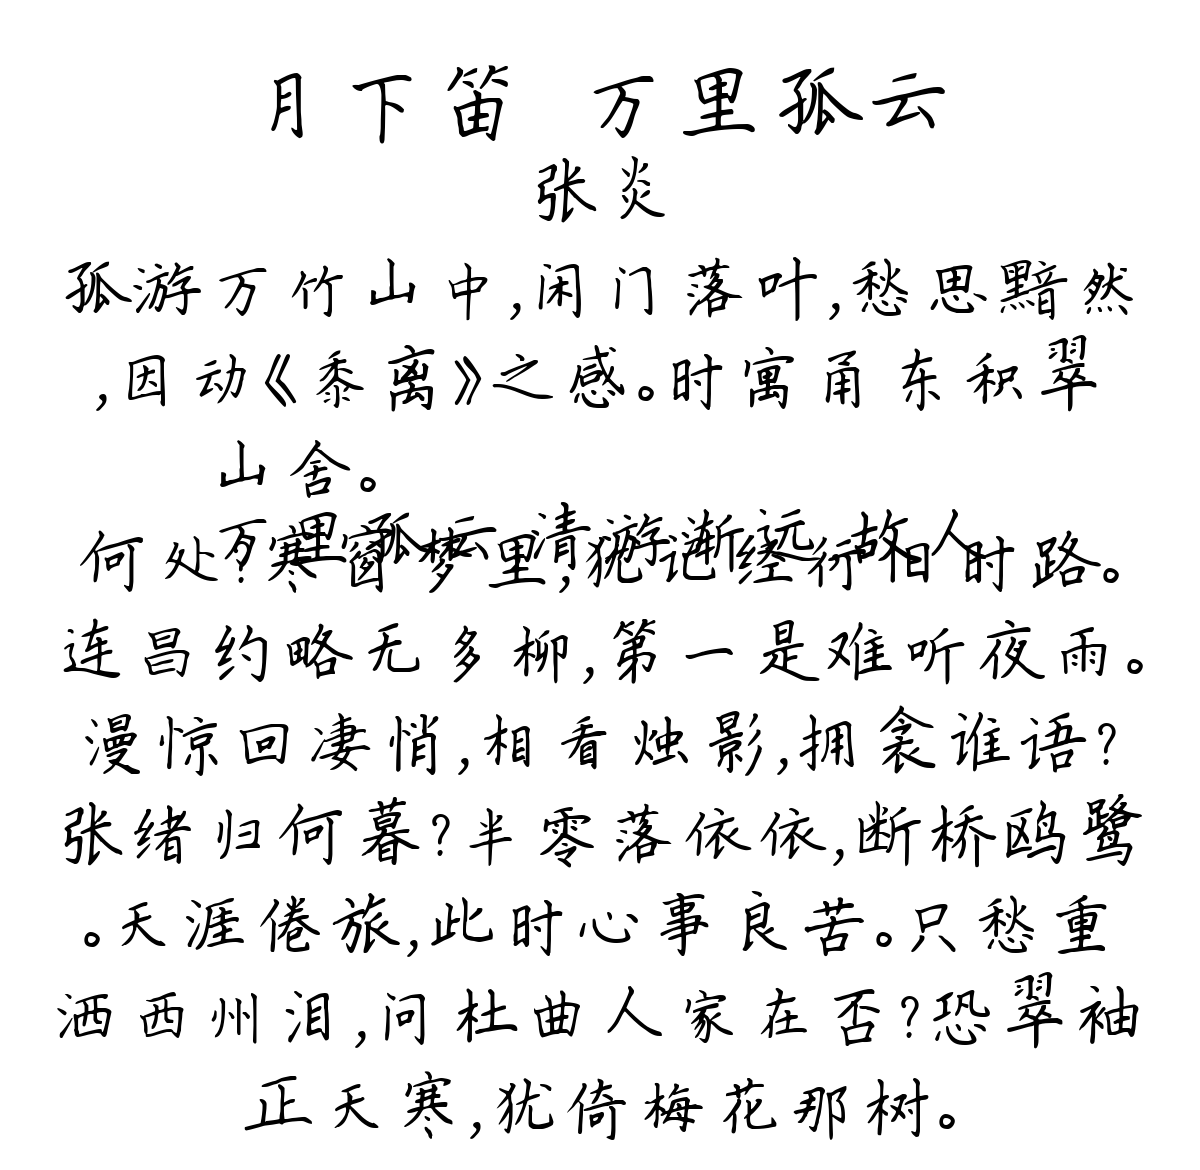 月下笛 万里孤云
张炎
孤游万竹山中,闲门落叶,愁思黯然
,因动《黍离》之感。时寓甬东积翠
山舍。
万里孤云,清游渐远,故人
何处?寒窗梦里,犹记经行旧时路。
连昌约略无多柳,第一是难听夜雨。
漫惊回凄悄,相看烛影,拥衾谁语?
张绪归何暮?半零落依依,断桥鸥鹭
。天涯倦旅,此时心事良苦。只愁重
洒西州泪,问杜曲人家在否?恐翠袖
正天寒,犹倚梅花那树。